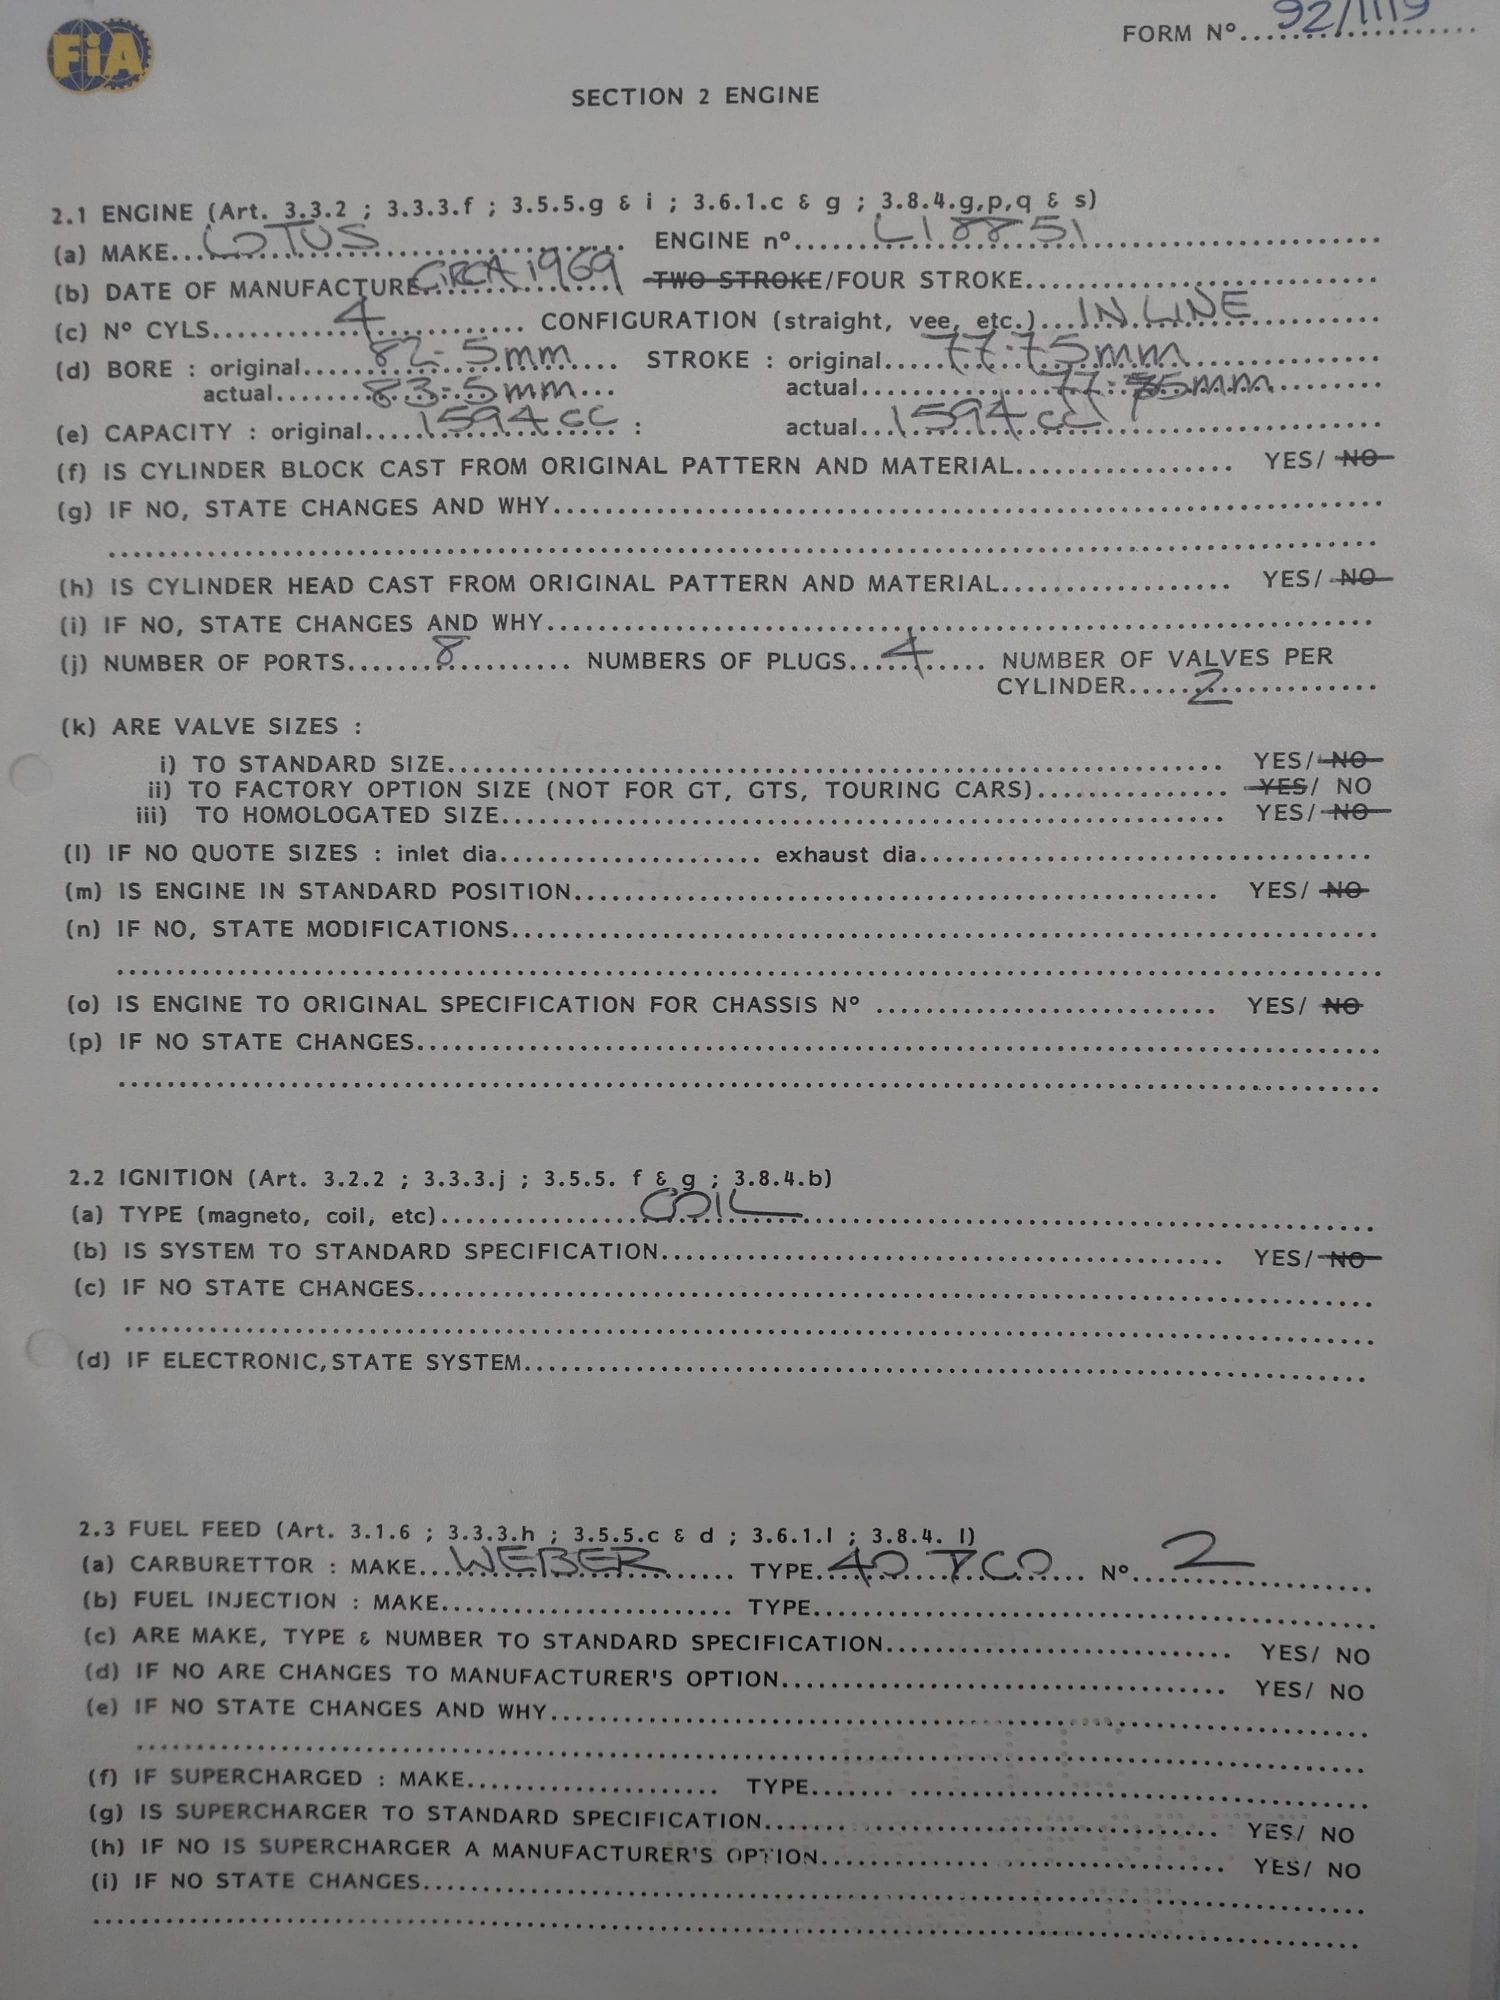 FiA
FORM Nº....92/1119
SECTION 2 ENGINE
2.1 ENGINE (Art. 3.3.2 ; 3.3.3.f ; 3.5.5.g & i ; 3.6.1.c & g ; 3.8.4.g,p,q & s)
(a) MAKE...LOTUS........ ENGINE nº.......L18851........
(b) DATE OF MANUFACTURE..CIRCA 1969 TWO STROKE/FOUR STROKE........
(c) Nº CYLS........4........ CONFIGURATION (straight, vee, etc.)...IN LINE........
(d) BORE : original.....82.5mm.... STROKE : original....77.75mm........
actual.......83.5mm... actual........77.75mm........
(e) CAPACITY : original....1594cc.... : actual...1594cc........
(f) IS CYLINDER BLOCK CAST FROM ORIGINAL PATTERN AND MATERIAL........ YES/ NO
(g) IF NO, STATE CHANGES AND WHY........
(h) IS CYLINDER HEAD CAST FROM ORIGINAL PATTERN AND MATERIAL........ YES/ NO
(i) IF NO, STATE CHANGES AND WHY........
(j) NUMBER OF PORTS.......8........ NUMBERS OF PLUGS...4..... NUMBER OF VALVES PER
CYLINDER.....2........
(k) ARE VALVE SIZES :
i) TO STANDARD SIZE........ YES/ NO
ii) TO FACTORY OPTION SIZE (NOT FOR GT, GTS, TOURING CARS)........ YES/ NO
iii) TO HOMOLOGATED SIZE........ YES/ NO
(l) IF NO QUOTE SIZES : inlet dia........ exhaust dia........
(m) IS ENGINE IN STANDARD POSITION........ YES/ NO
(n) IF NO, STATE MODIFICATIONS........
(o) IS ENGINE TO ORIGINAL SPECIFICATION FOR CHASSIS Nº ........ YES/ NO
(p) IF NO STATE CHANGES........
2.2 IGNITION (Art. 3.2.2 ; 3.3.3.j ; 3.5.5. f & g ; 3.8.4.b)
(a) TYPE (magneto, coil, etc)........COIL........
(b) IS SYSTEM TO STANDARD SPECIFICATION........ YES/ NO
(c) IF NO STATE CHANGES........
(d) IF ELECTRONIC, STATE SYSTEM........
2.3 FUEL FEED (Art. 3.1.6 ; 3.3.3.h ; 3.5.5.c & d ; 3.6.1.l ; 3.8.4. l)
(a) CARBURETTOR : MAKE...WEBER...... TYPE.40........ Nº....2........
(b) FUEL INJECTION : MAKE........ TYPE........
(c) ARE MAKE, TYPE & NUMBER TO STANDARD SPECIFICATION........ YES/ NO
(d) IF NO ARE CHANGES TO MANUFACTURER'S OPTION........ YES/ NO
(e) IF NO STATE CHANGES AND WHY........
(f) IF SUPERCHARGED : MAKE........ TYPE........
(g) IS SUPERCHARGER TO STANDARD SPECIFICATION........ YES/ NO
(h) IF NO IS SUPERCHARGER A MANUFACTURER'S OPTION........ YES/ NO
(i) IF NO STATE CHANGES........